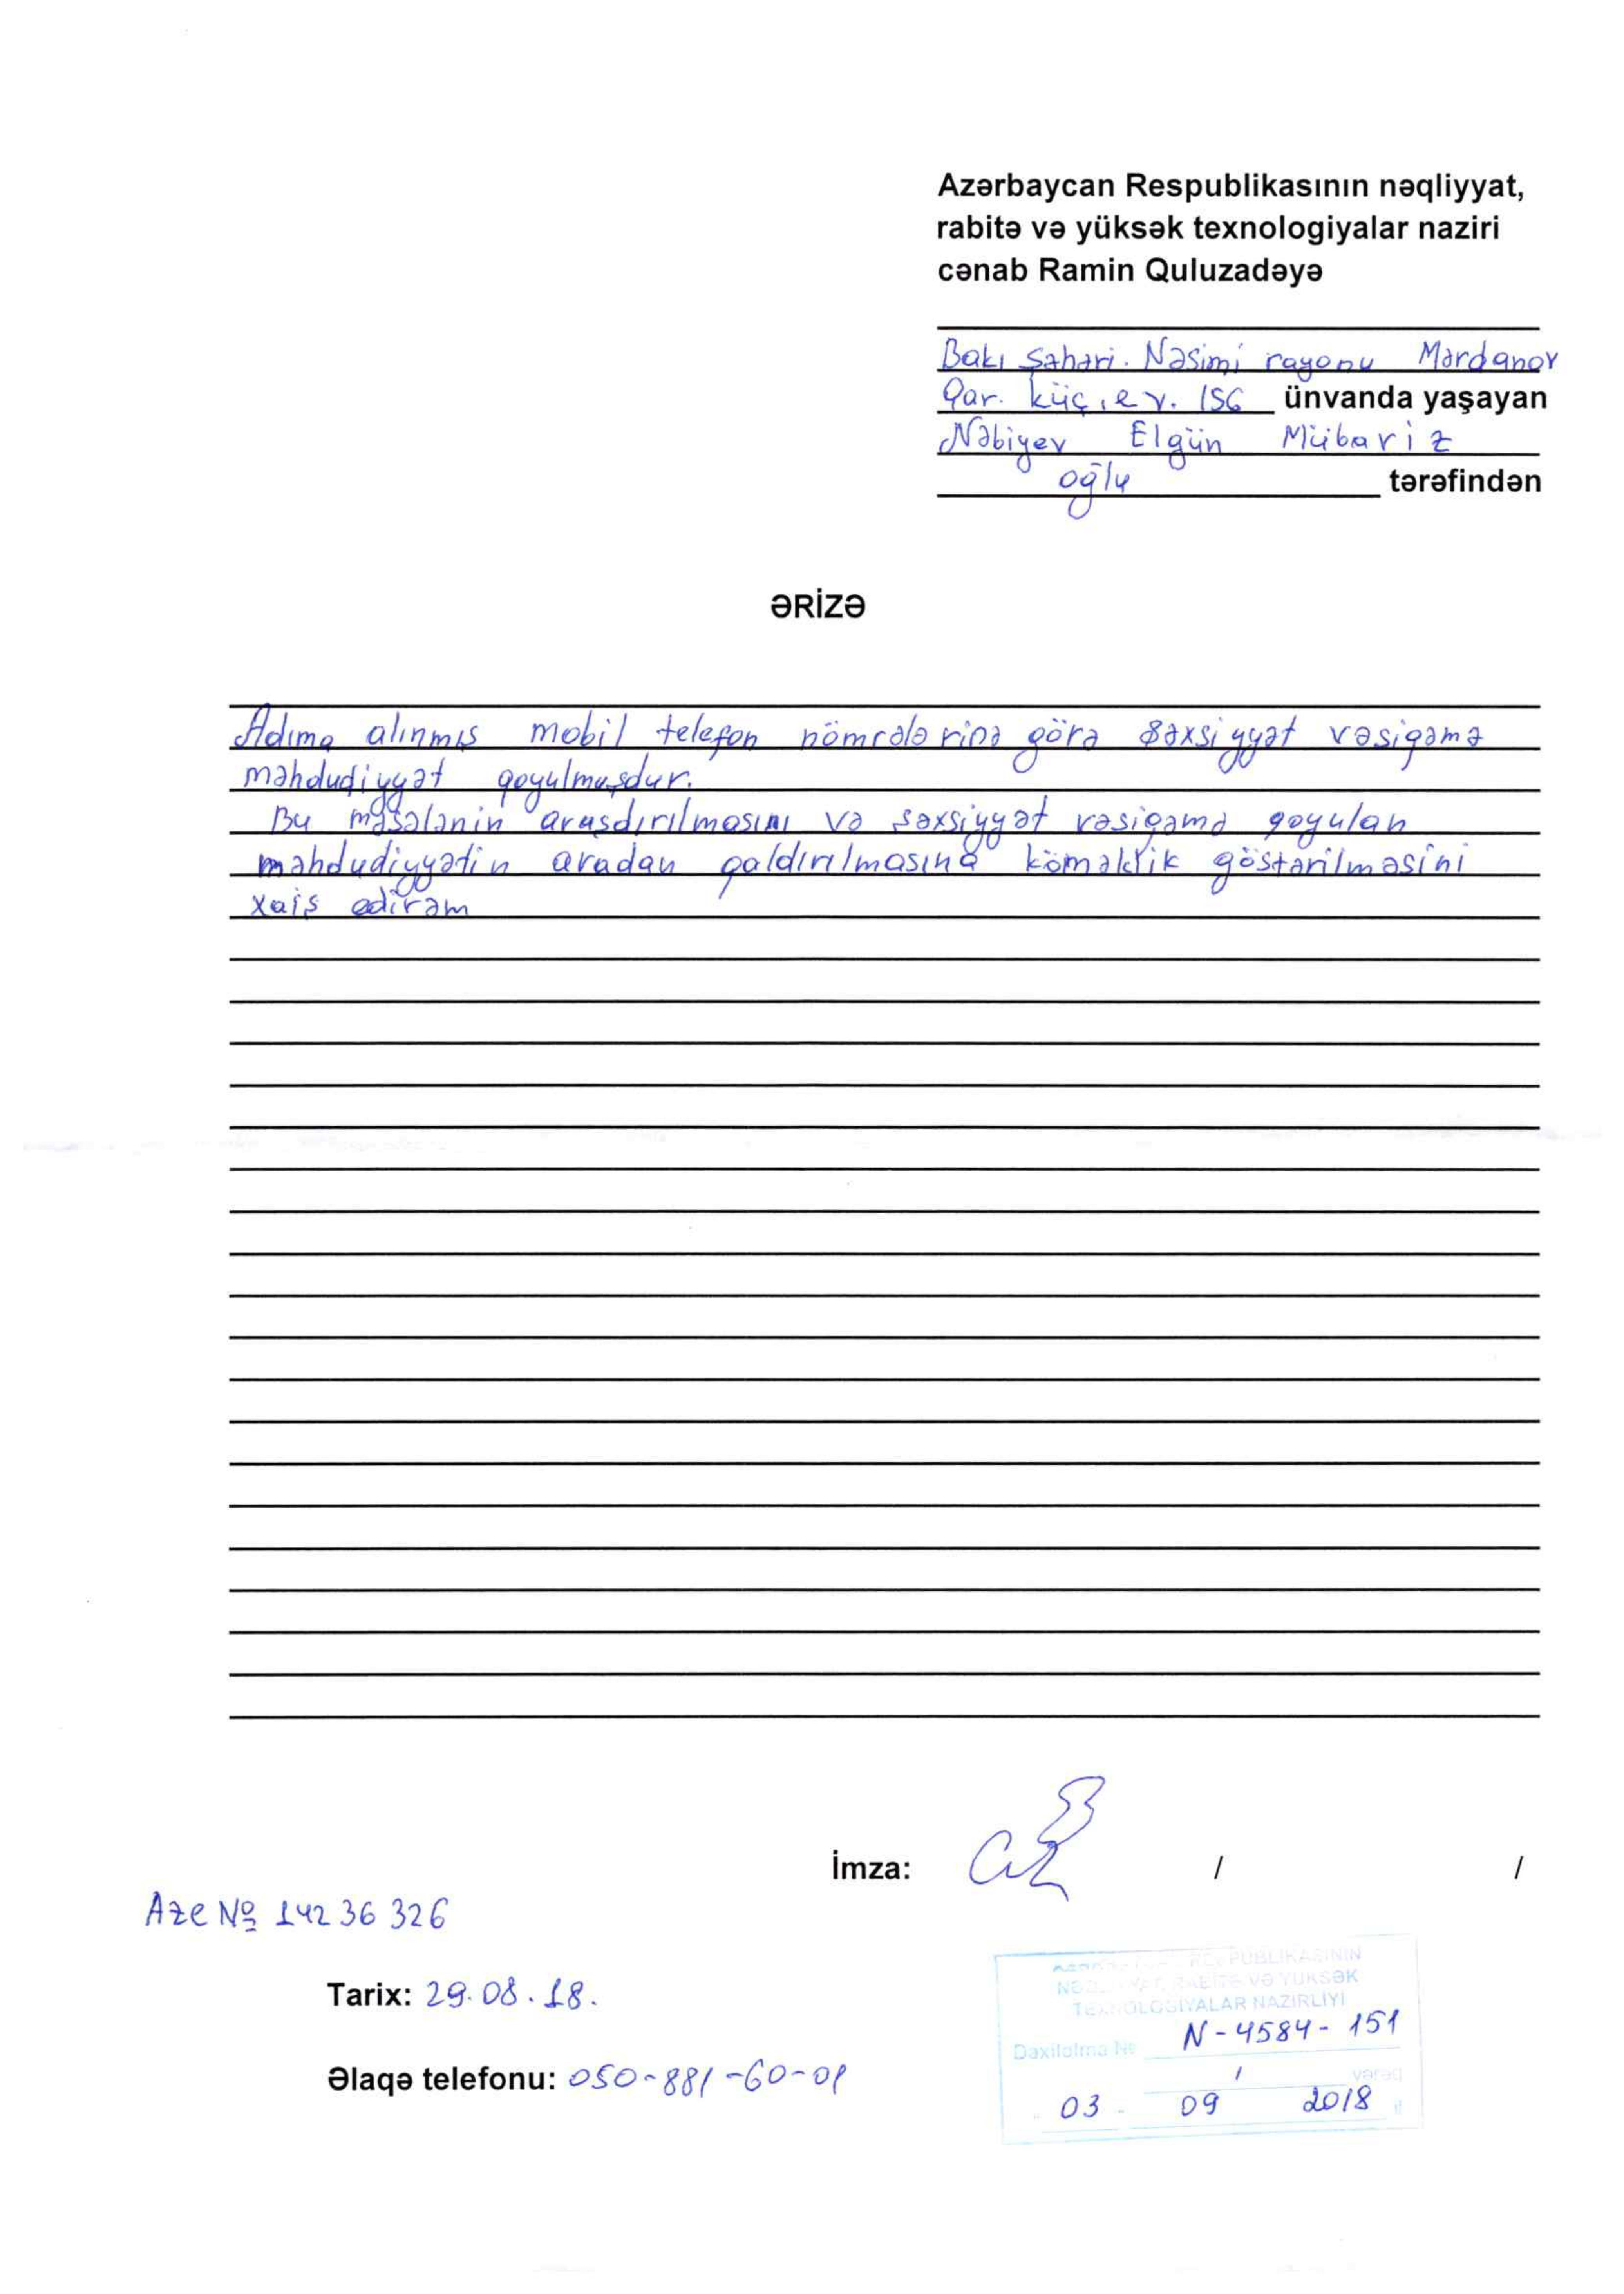 Azərbaycan Respublikasının nəqliyyat,
rabitə və yüksək texnologiyalar naziri
cənab Ramin Quluzadəyə
Bakı şəhəri. Nəsimi rayonu Mərdanov
Qar. küç, ev. 156 ünvanda yaşayan
Nəbiyev Elgün Mübariz
oğlu tərəfindən
ƏRİZƏ
Adıma alınmış mobil telefon nömrələrinə görə şəxsiyyət vəsiqəmə
məhdudiyyət qoyulmuşdur.
Bu məsələnin araşdırılmasını və şəxsiyyət vəsiqəmə qoyulan
məhdudiyyətin aradan qaldırılmasına köməklik göstərilməsini
xaiş edirəm
İmza: / /
Aze № 142 36 326
Tarix: 29.08.18.
RESPUBLİKASININ
RABİTƏ VƏ YÜKSƏK
TEXNOLOGİYALAR NAZİRLİYİ
Daxilolma № N-4584-151
1 vərəq
03 09 2018 il
Əlaqə telefonu: 050-881-60-01